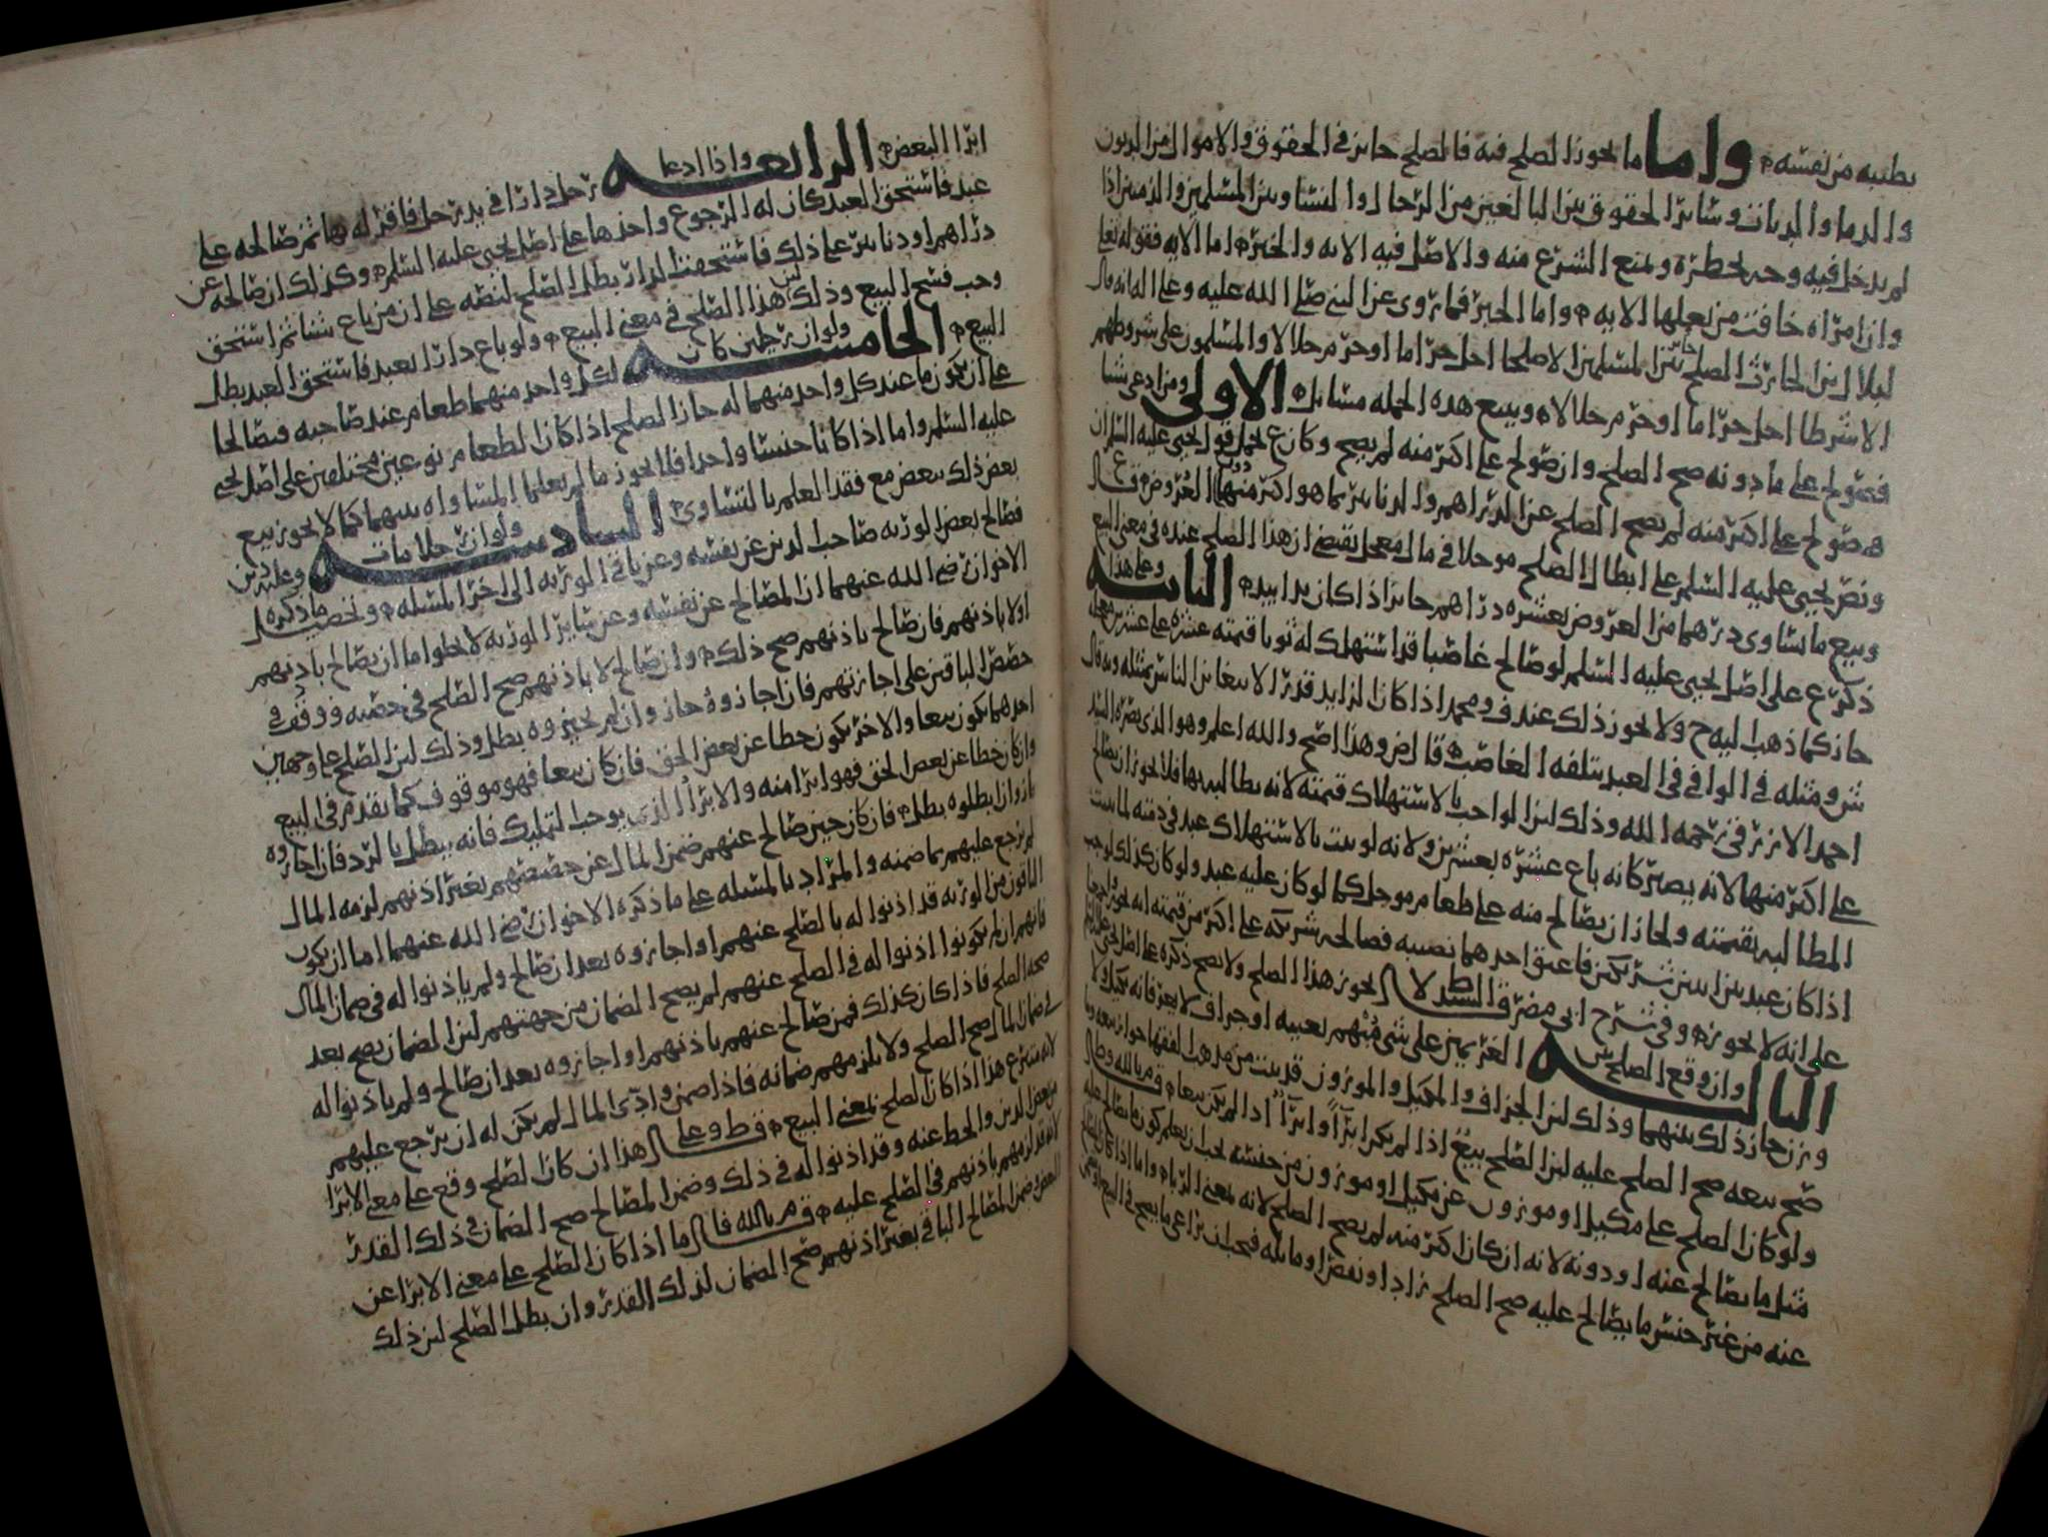 بطيبه من نفسه واما ما يجوز الصلح فيه فالصلح جايز في الحقوق والاموال من الديون
والدما والديات وسائر الحقوق بين البالغين من الرجال والنسا وبين المسلمين والذميين اذا
لم يدخل فيه وجه يحظره ويمنع الشرع منه والاصل فيه الايه والخبر اما الايه فقوله تعالى
وان امراه خافت من بعلها الايه واما الخبر فما روى عن النبي صلى الله عليه وعلى اله انه قال
لبلال بن الحارث الصلح جائز بين المسلمين الا صلحا احل حراما او حرم حلالا والمسلمون على شروطهم
الا شرطا احل حراما او حرم حلالا ويتبع هذه الجمله مسايل الاولى ومن ادعى شيا
فصولح على ما دونه صح الصلح وان صولح على اكثر منه لم يصح وكان ع يحمل قول يحيى عليه السلم ان
صولح على اكثر منه لم يصح الصلح عن الدراهم والدنانير بما هو اكثر منها دون العروض
ونص يحيى عليه السلم على ابطال الصلح موجلا في مال معجل يقتضي ان هذا الصلح عنده في معنى البيع
وبيع ما يساوي درهما من العروض بعشره دراهم جايز اذا كان يدا بيد الثانيه وعلى هذا
ذكر ع على اصل يحيى عليه السلم لو صالح غاصبا قد استهلك له ثوبا قيمته عشره على عشرين
جاز كما ذهب اليه ح ولا يجوز ذلك عند ف ومحمد اذا كان الزايد قدرا لا يتغابن الناس بمثله وبه قال
ش ومثله في الوافي في العبد يتلفه الغاصب قال ض وهذا اصح والله اعلم وهو الذي نصره السيد
احمد الازرقي رحمه الله وذلك لان الواجب بالاستهلاك قيمته لانه يطالب بها فلا يجوز ان يصالح
على اكثر منها لانه يصير كانه باع عشره بعشرين ولانه لو ثبت بالاستهلاك عبد في ذمته لما ثبت
المطالبه بقيمته ولجاز ان يصالح منه على طعام موجل كما لو كان عليه عبد ولو كان كذلك لوجب
اذا كان عبد بين اثنين شريكين فاعتق احدهما نصيبه فصالحه شريكه على اكثر من قيمته انه يجوز
على انه لا يجوز وفي شرح ابي مضر قال السيد ط لا يجوز هذا الصلح ولا يصح ذكره على اصل يحيى
الثالثه وان وقع الصلح بين الغريمين على شي منهم بعينه او جزاف لا يعرفانه بكيل ولا
وزن جاز ذلك بينهما وذلك لان الجزاف والمكيل والموزون قد بينت من مذهب الفقها جواز بيعه وما
صح بيعه صح الصلح عليه لان الصلح بيع اذا لم يكن ابرآ وابرآ اذا لم يكن بيعا
ولو كان الصلح على مكيل او موزون عن مكيل او موزون من جنسه يجب ان يعلم كون ما يصالح عليه
مثل ما يصالح عنه او دونه لانه ان كان اكثر منه لم يصح الصلح لانه بمعنى الربا واما اذا كان
عنه من غير جنس ما يصالح عليه صح الصلح زاد او نقص او ماثله فيجب ان يراعى ما يصح في البيع
ابرا البعض الرابعه واذا ادعا
رجل دارا في يد رجل فاقر له بها ثم صالحه على
عبد فاستحق العبد كان له الرجوع واخذها على اصل يحيى عليه السلم وكذلك ان صالحه عن
دراهم او دنانير على ذلك فاستحقت الدار بطل الصلح لنصه على ان من باع شيا ثم استحق
وجب فسخ البيع وذلك لان هذا الصلح في معنى البيع ولو باع دارا بعبد فاستحق العبد بطل
البيع الخامسه ولو ان رجلين كان
لكل واحد منهما طعام عند صاحبه فصالحا
على ان يكون ما عند كل واحد منهما له جاز الصلح اذا كان الطعام نوعين مختلفين على اصل يحيى
عليه السلم واما اذا كانا جنسا واحدا فلا يجوز ما لم يعلما المساواه بينهما كما لا يجوز بيع
بعض ذلك ببعض مع فقد العلم بالتساوي السادسه ولو ان رجلا مات وعليه دين
فصالح بعض الورثه صاحب الدين عن نفسه وعن باقي الورثه الى اخر المسله وتحصيل ما ذكره
الاخوان رضي الله عنهما ان المصالح عن نفسه وعن سائر الورثه لا يخلوا اما ان يصالح باذنهم
اولا باذنهم فان صالح باذنهم صح ذلك وان صالح لا باذنهم صح الصلح في حصته ووقف في
حصص الباقين على اجازتهم فان اجازوه جاز وان لم يجيزوه بطل وذلك لان الصلح على وجهين
احدهما يكون بيعا والاخر يكون حطا عن بعض الحق فان كان بيعا فهو موقوف كما تقدم في البيع
وان كان حطا عن بعض الحق فهو ابرا منه والابرا الذي يوجب التمليك فانه يبطل بالرد فان اجازوه
جاز وان بطلوه بطل فان كان حين صالح عنهم ضمن المال عن حصتهم بغير اذنهم لزمه المال
لم يرجع عليهم بما ضمنه والمراد بالمسله على ما ذكره الاخوان رضي الله عنهما اما ان يكون
الباقون من الورثه قد اذنوا له بالصلح عنهم او اجازوه بعد ان صالح ولم ياذنوا له في ضمان المال
فانهم ان لم يكونوا اذنوا له في الصلح عنهم لم يصح الضمان من جهتهم لان الضمان يصح بعد
صحه الصلح فاذا كان كذلك فمن صالح عنهم باذنهم او اجازوه بعد ان صالح ولم ياذنوا له
في ضمان المال صح الصلح ولا يلزمهم ضمانه فاذا ضمن وادى المال لم يكن له ان يرجع عليهم
لانه متبرع هذا اذا كان الصلح بمعنى البيع قال ط وعلى هذا ان كان الصلح وقع على معنى الابرا
من بعض الدين والحط عنه وقد اذنوا له في ذلك وضمن المصالح صح الضمان في ذلك القدر
لانه قد لزمهم باذنهم في الصلح عليه قال م بالله فاما اذا كان الصلح على معنى الابرا عن
البعض وضمن المصالح الباقي بغير اذنهم صح الضمان لذلك القدر وان بطل الصلح لان ذلك